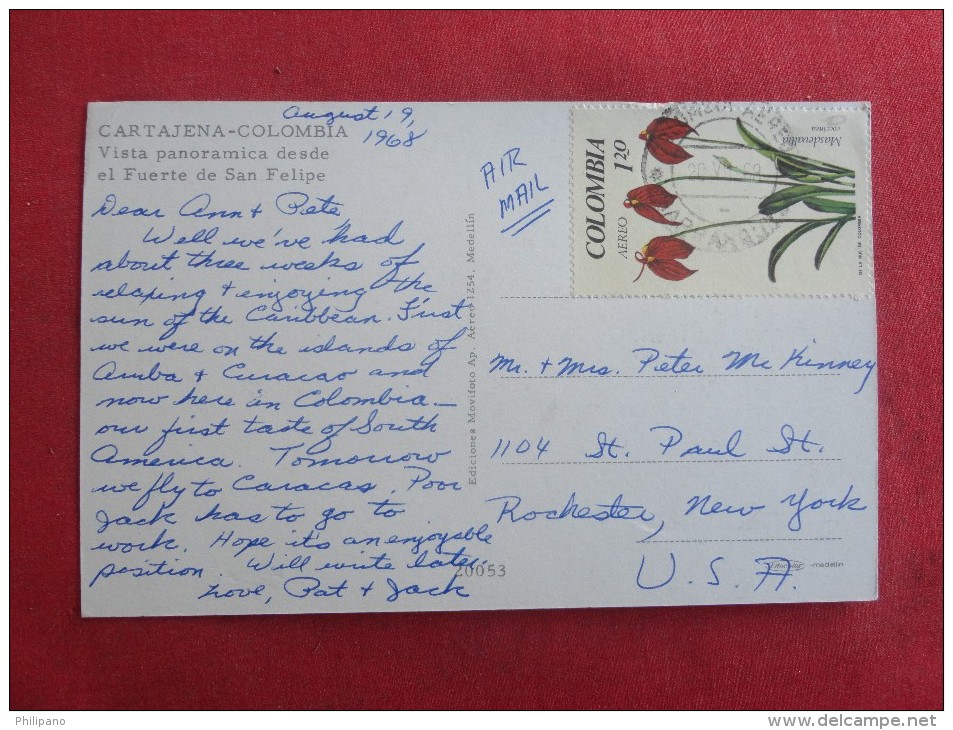 August 19,
1968
CARTAJENA-COLOMBIA
Vista panoramica desde
el Fuerte de San Felipe
Dear Ann + Pete,
Well we've had
about three weeks of
relaxing + enjoying the
sun of the Caribbean. First
we were on the islands of
Aruba + Curacao and
now here in Colombia -
our first taste of South
America. Tomorrow
we fly to Caracas. Poor
Jack has to go to
work. Hope it's an enjoyable
position. Will write later.
Love, Pat + Jack
20053
Ediciones Movifoto Ap. Aereo 1254, Medellín
AIR
MAIL
COLOMBIA
AEREO
1.20
Masdevallia
coccinea
Mr. + Mrs. Peter McKinney
1104 St. Paul St.
Rochester, New York
U.S.A.
-medellin
Philipano
www.delcampe.net